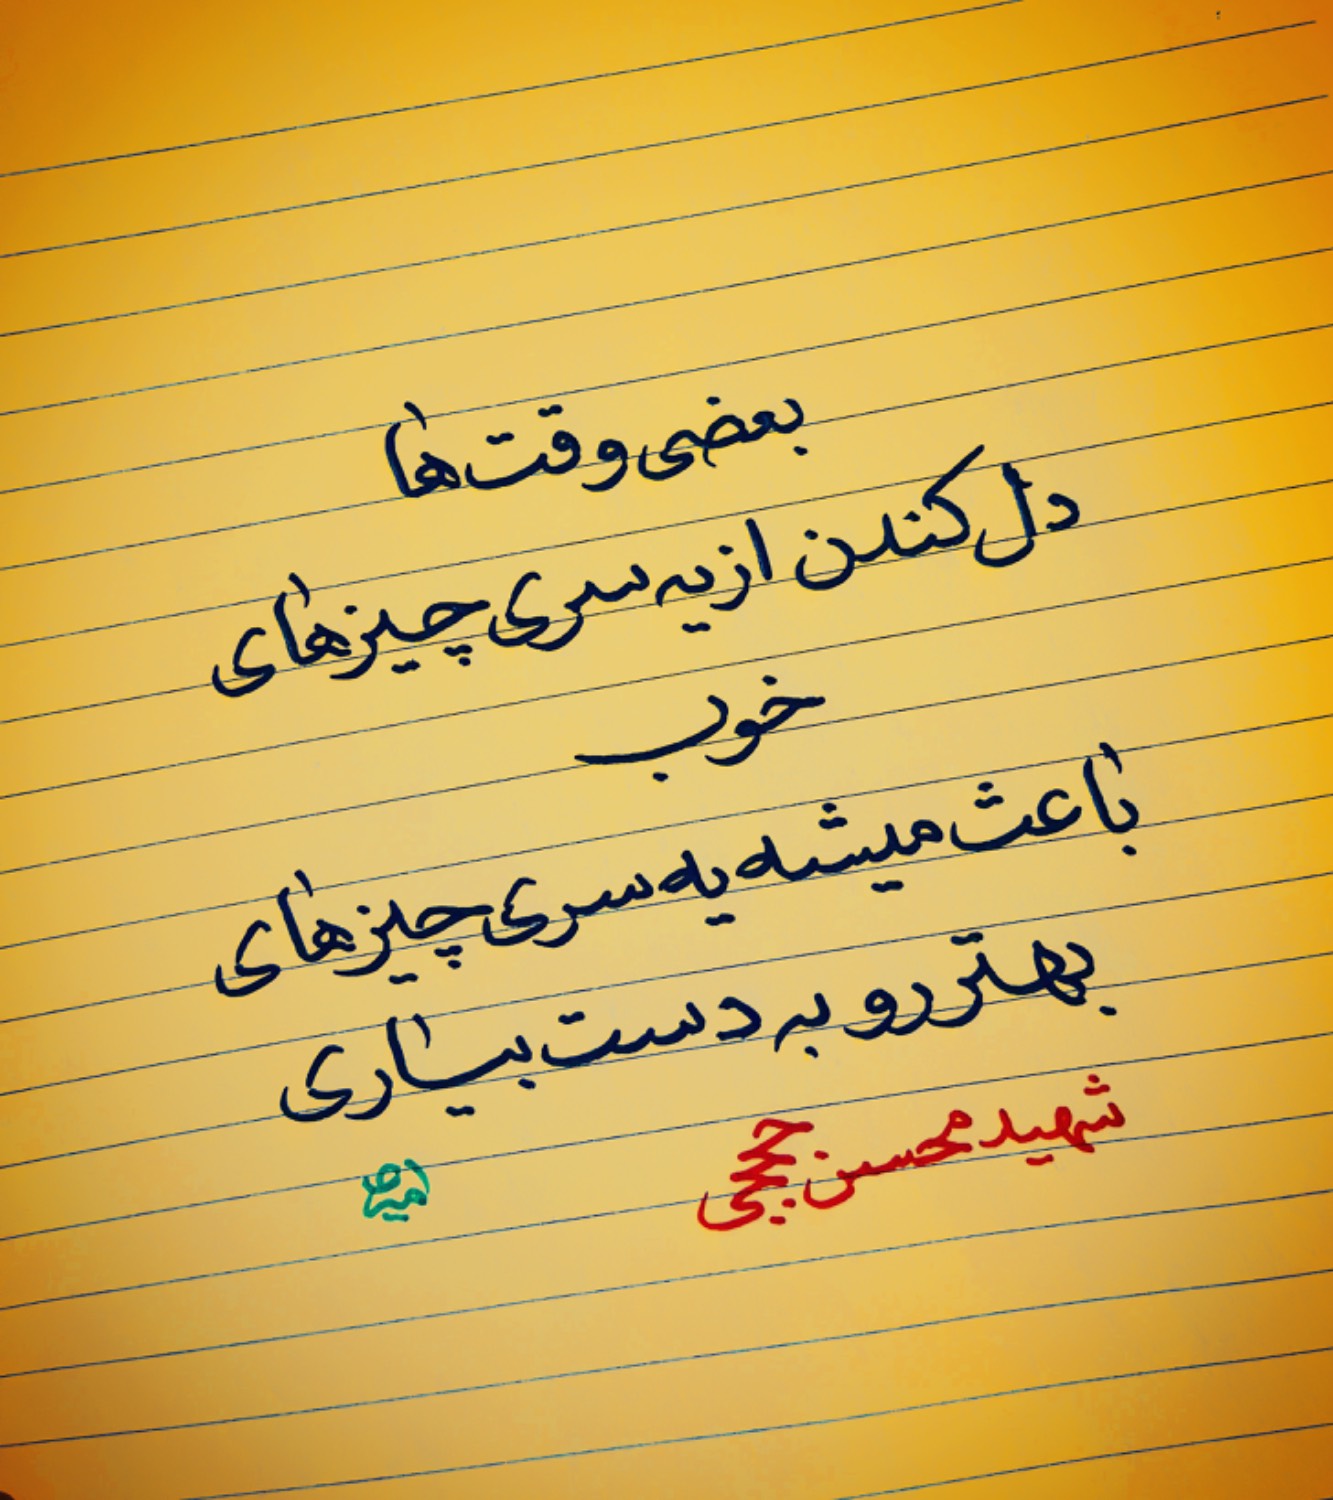 بعضی وقت‌ها
دل کندن از یه سری چیزهای
خوب
باعث میشه یه سری چیزهای
بهتر رو به دست بیاری
شهید محسن حججی